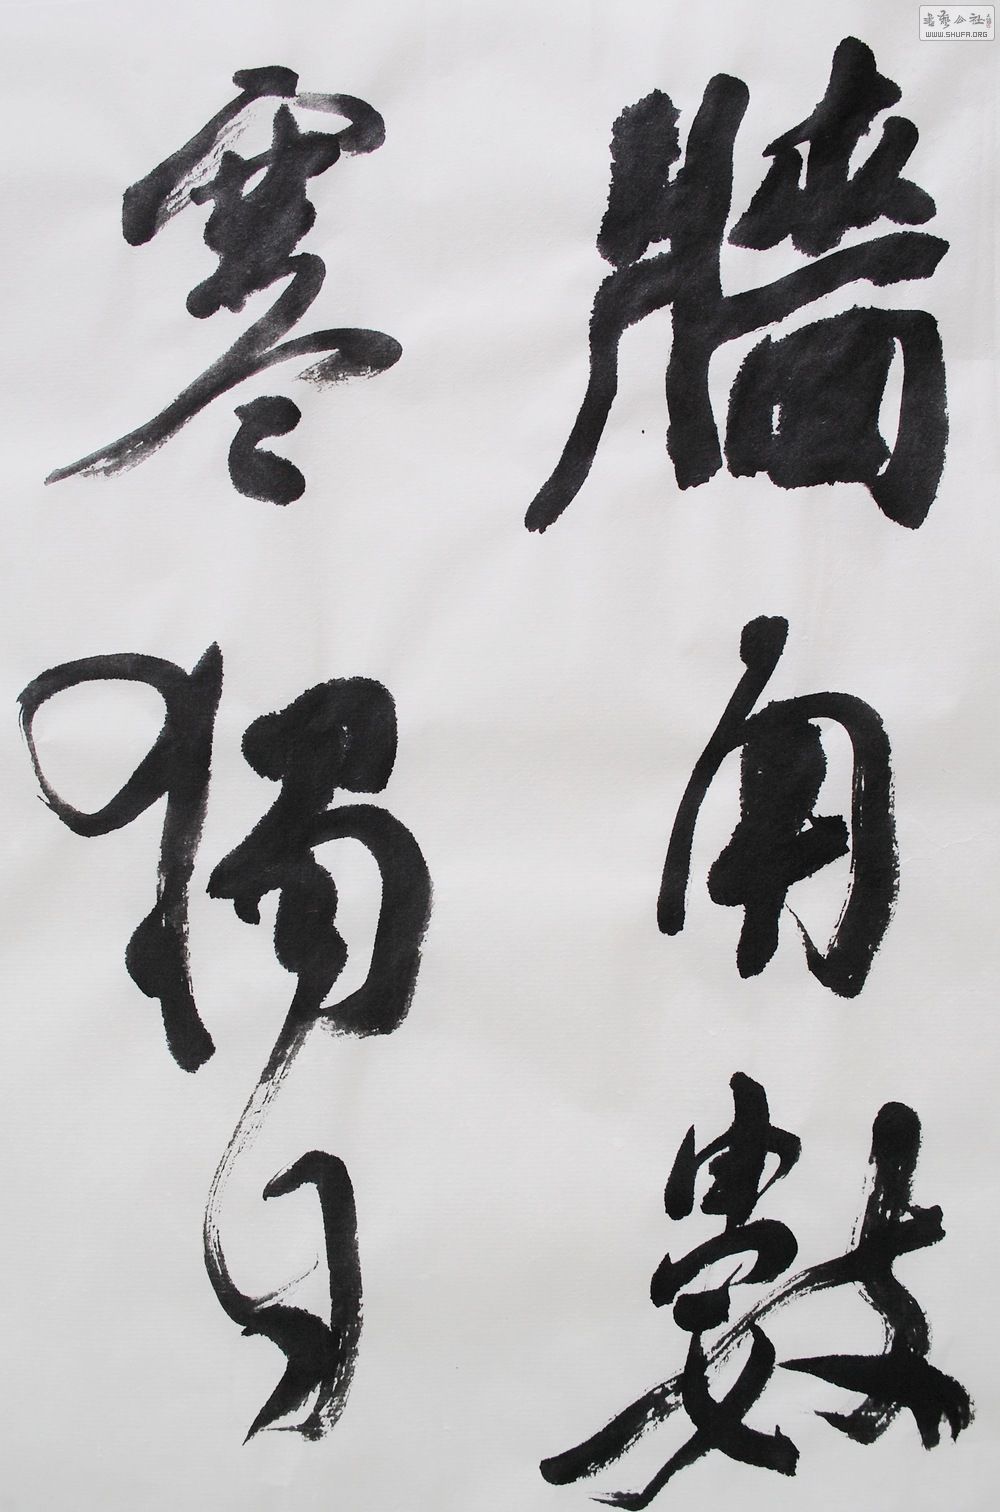 牆角數
寒獨自
書藝公社
WWW.SHUFA.ORG